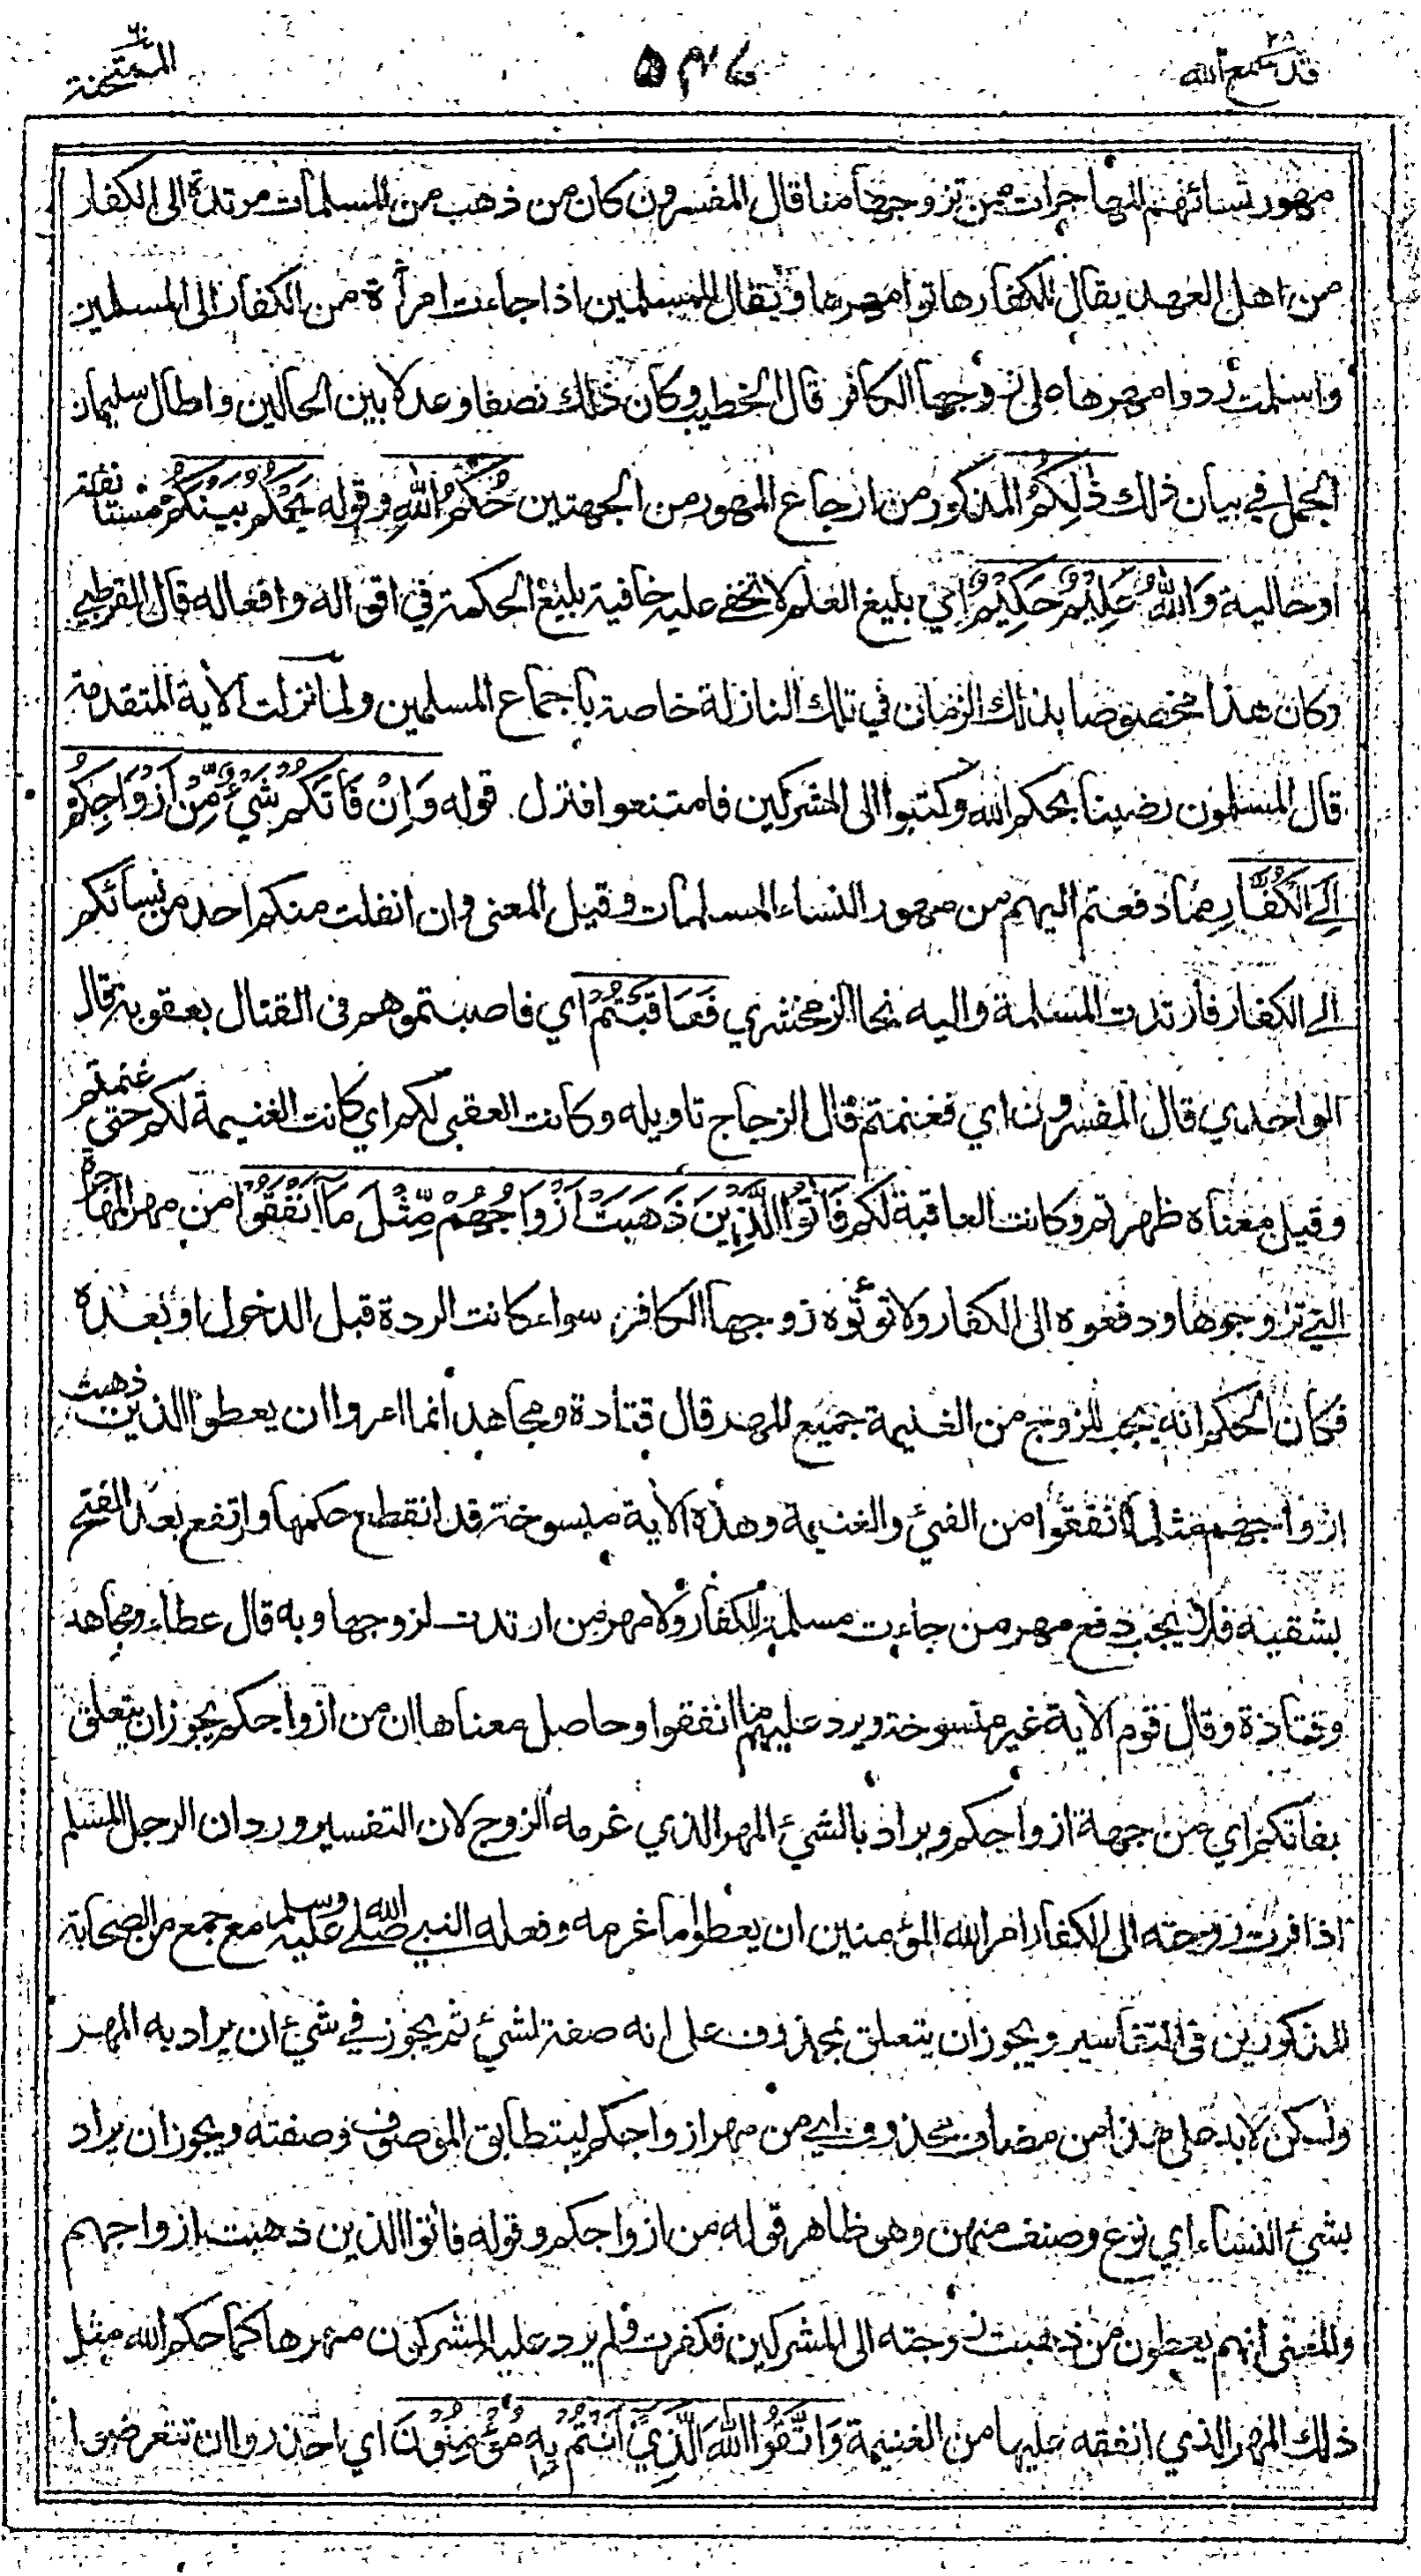 قد سمع الله ٢٨
الممتحنة ٦٠
مهور نسائهم المهاجرات ممن تزوجها منا قال المفسرون كان من ذهب من المسلمات مرتدة الى الكفار
من اهل العهد يقال للكفار هاتوا مهرها ويقال للمسلمين اذا جاءت امرأة من الكفار الى المسلمين
واسلمت ردوا مهرها على زوجها الكافر قال الخطيب وكان ذلك نصفا وعدلا بين الحالين واطال سليمان
الجمل في بيان ذلك ذٰلِكُمْ المذكور من ارجاع المهور من الجهتين حُكْمُ اللّٰهِ وقوله يَحْكُمُ بَيْنَكُمْ مستانفة
او حالية وَاللّٰهُ عَلِيْمٌ حَكِيْمٌ اي بليغ العلم لا تخفى عليه خافية بليغ الحكمة في اقواله وافعاله قال القرطبي
وكان هذا مخصوصا بذلك الزمان في تلك النازلة خاصة باجماع المسلمين ولما نزلت الأية المتقدمة
قال المسلمون رضينا بحكم الله وكتبوا الى المشركين فامتنعوا فنزل قوله وَاِنْ فَاتَكُمْ شَيْءٌ مِّنْ اَزْوَاجِكُمْ
اِلَى الْكُفَّارِ مما دفعتم اليهم من مهور النساء المسلمات وقيل المعنى وان انفلت منكم احد من نسائكم
الى الكفار فارتدت المسلمة واليه نحا الزمخشري فَعَاقَبْتُمْ اي فاصبتموهم فى القتال بعقوبة قال
الواحدي قال المفسرون اي فغنمتم قال الزجاج تاويله وكانت العقبى لكم اي كانت الغنيمة لكم حتى غنمتم
وقيل معناه ظهرتم وكانت العاقبة لكم فَاٰتُوا الَّذِيْنَ ذَهَبَتْ اَزْوَاجُهُمْ مِّثْلَ مَآ اَنْفَقُوْا من مهر المهاجرة
التي تزوجوها ودفعوه الى الكفار ولا تؤتوه زوجها الكافر سواء كانت الردة قبل الدخول او بعده
فكان الحكم انه يجب للزوج من الغنيمة جميع المهر قال قتادة ومجاهد انما امروا ان يعطوا الذين ذهبت
ازواجهم مثل ما انفقوا من الفيئ والغنيمة وهذه الأية منسوخة قد انقطع حكمها وارتفع بعد الفتح
بشقيه فلا يجب دفع مهر من جاءت مسلمة للكفار ولا مهر من ارتدت لزوجها وبه قال عطاء ومجاهد
وقتادة وقال قوم الأية غير منسوخة ويرد عليهم ما انفقوا وحاصل معناها ان من ازواجكم يجوز ان يتعلق
بفاتكم اي من جهة ازواجكم ويراد بالشيئ المهر الذي غرمه الزوج لان التفسير ورد ان الرجل المسلم
اذا فرت زوجته الى الكفار امر الله المؤمنين ان يعطوا ما غرمه وفعله النبي صلى الله عليه وسلم مع جمع من الصحابة
المذكورين في التفاسير ويجوز ان يتعلق بمحذوف على انه صفة لشيئ ثم يجوز في شيئ ان يراد به المهر
ولكن لا بد على هذا من مضاف محذوف اي من مهر ازواجكم ليتطابق الموصوف وصفته ويجوز ان يراد
بشيئ النساء اي نوع وصنف منهن وهو ظاهر قوله من ازواجكم وقوله فاتوا الذين ذهبت ازواجهم
والمعنى انهم يعطون من ذهبت زوجته الى المشركين فكفرت ولم يرد عليه المشركون مهرها كما حكم الله مثل
ذلك المهر الذي انفقه عليها من الغنيمة وَاتَّقُوا اللّٰهَ الَّذِيْٓ اَنْتُمْ بِهٖ مُؤْمِنُوْنَ اي احذروا ان تتعرضوا